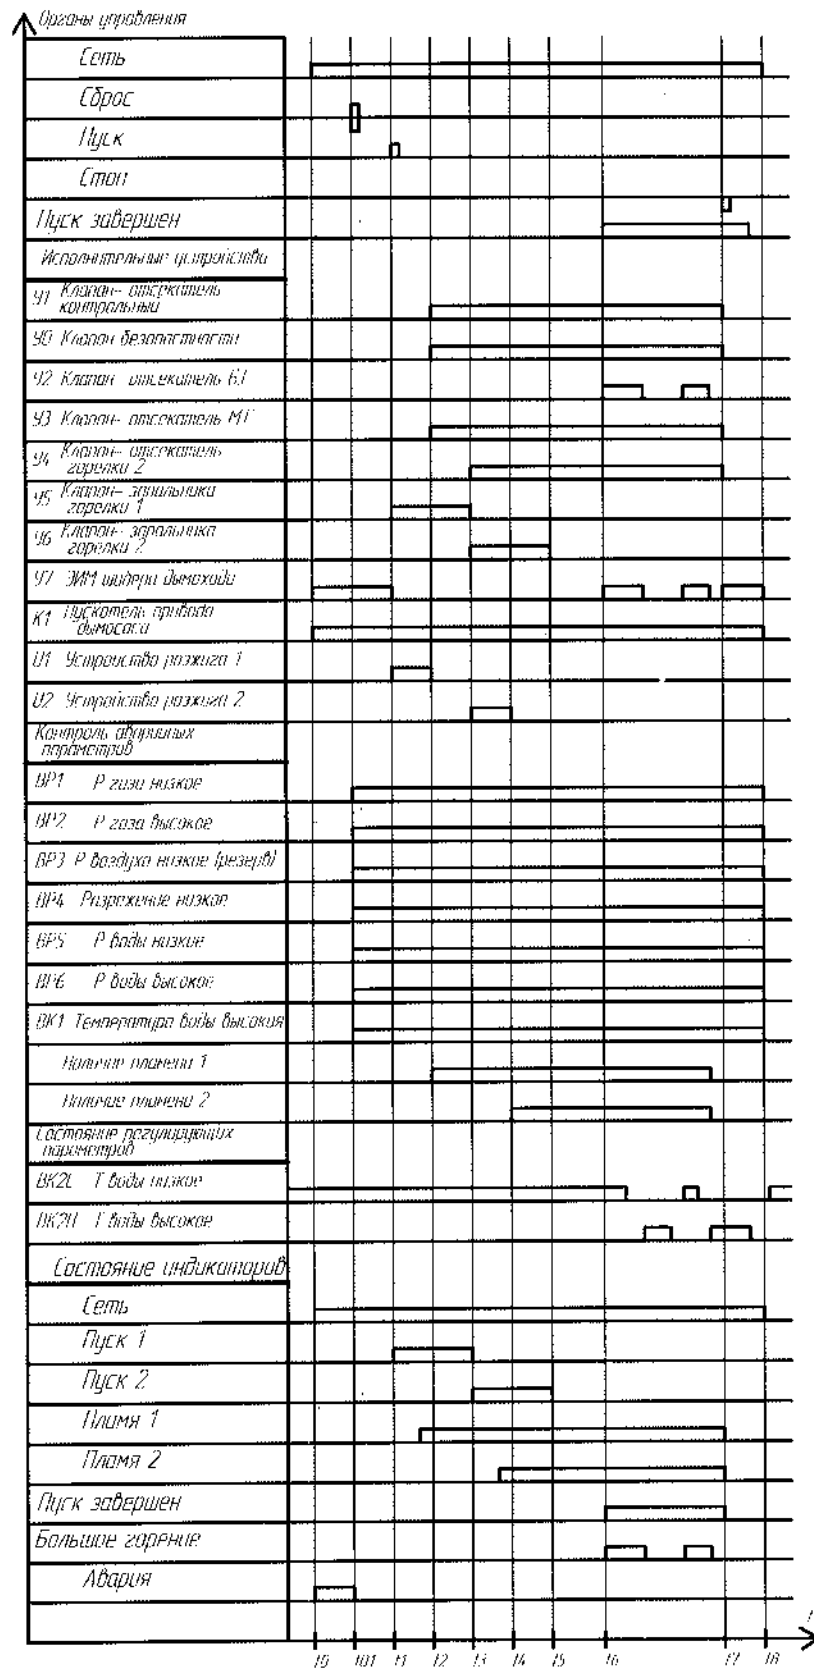 Органы управления
Сеть
Сброс
Пуск
Стоп
Пуск завершен
Исполнительные устройства
У1 Клапан- отсекатель
контрольный
У0 Клапан безопастности
У2 Клапан отсекатель БГ
У3 Клапан- отсекатель МГ
У4 Клапан- отсекатель
горелки 2
У5 Клапан- запальника
горелки 1
У6 Клапан- запальника
горелки 2
У7 ЭИМ шибера дымохода
К1 Пускатель привода
дымососа
U1 Устройство розжига 1
U2 Устройство розжига 2
Контроль аварийных
параметров
ВР1 Р газа низкое
ВР2 Р газа высокое
ВР3 Р воздуха низкое (резерв)
ВР4 Разрежение низкое
ВР5 Р воды низкое
ВР6 Р воды высокое
ВК1 Температура воды высокая
Наличие пламени 1
Наличие пламени 2
Состояние регулирующих
параметров
ВК2L Т воды низкое
ВК2Н Т воды высокое
Состояние индикаторов
Сеть
Пуск 1
Пуск 2
Пламя 1
Пламя 2
Пуск завершен
Большое горение
Авария
t
t0 t01 t1 t2 t3 t4 t5 t6 t7 t8